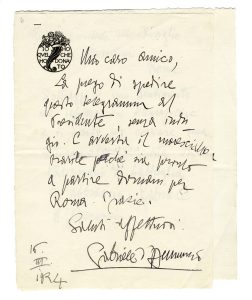 IO HO
QUEL CHE
HO DONATO
Mio caro amico,
La prego di spedire
questo telegramma al
Presidente, senza indu
gio. E avverta il maresciallo
perché sia pronto
a partire domani per
Roma. Grazie.
Saluti affettuosi.
Gabriele d'Annunzio
16
III
1924